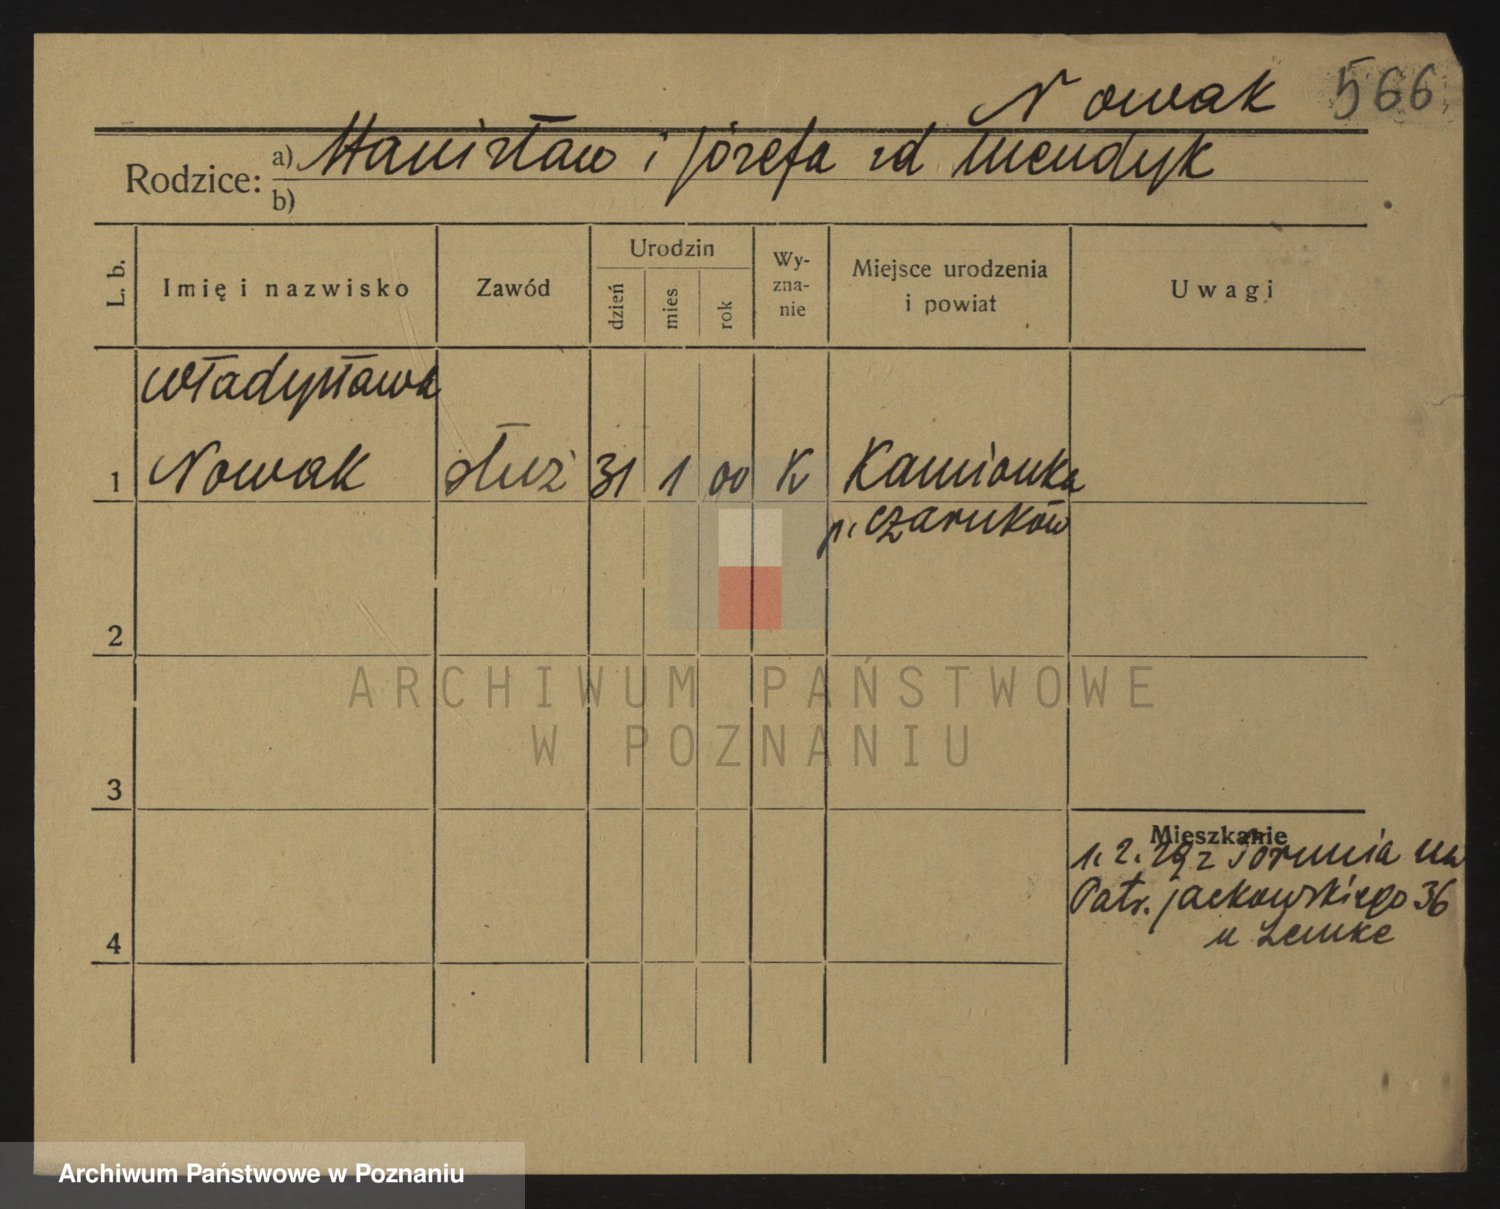 Nowak 566
Rodzice: a) Stanisław i Józefa zd Mendyk
b)
L. b. Imię i nazwisko Zawód Urodzin dzień mies rok Wy-zna-nie Miejsce urodzenia i powiat Uwagi
Władysława
1 Nowak służ 31 1 00 K Kamionka
p. Czarnków
2
ARCHIWUM PAŃSTWOWE
W POZNANIU
3
Mieszkanie
1. 2. 29 z Torunia na
Patr. Jackowskiego 36
4 u Lemke
Archiwum Państwowe w Poznaniu